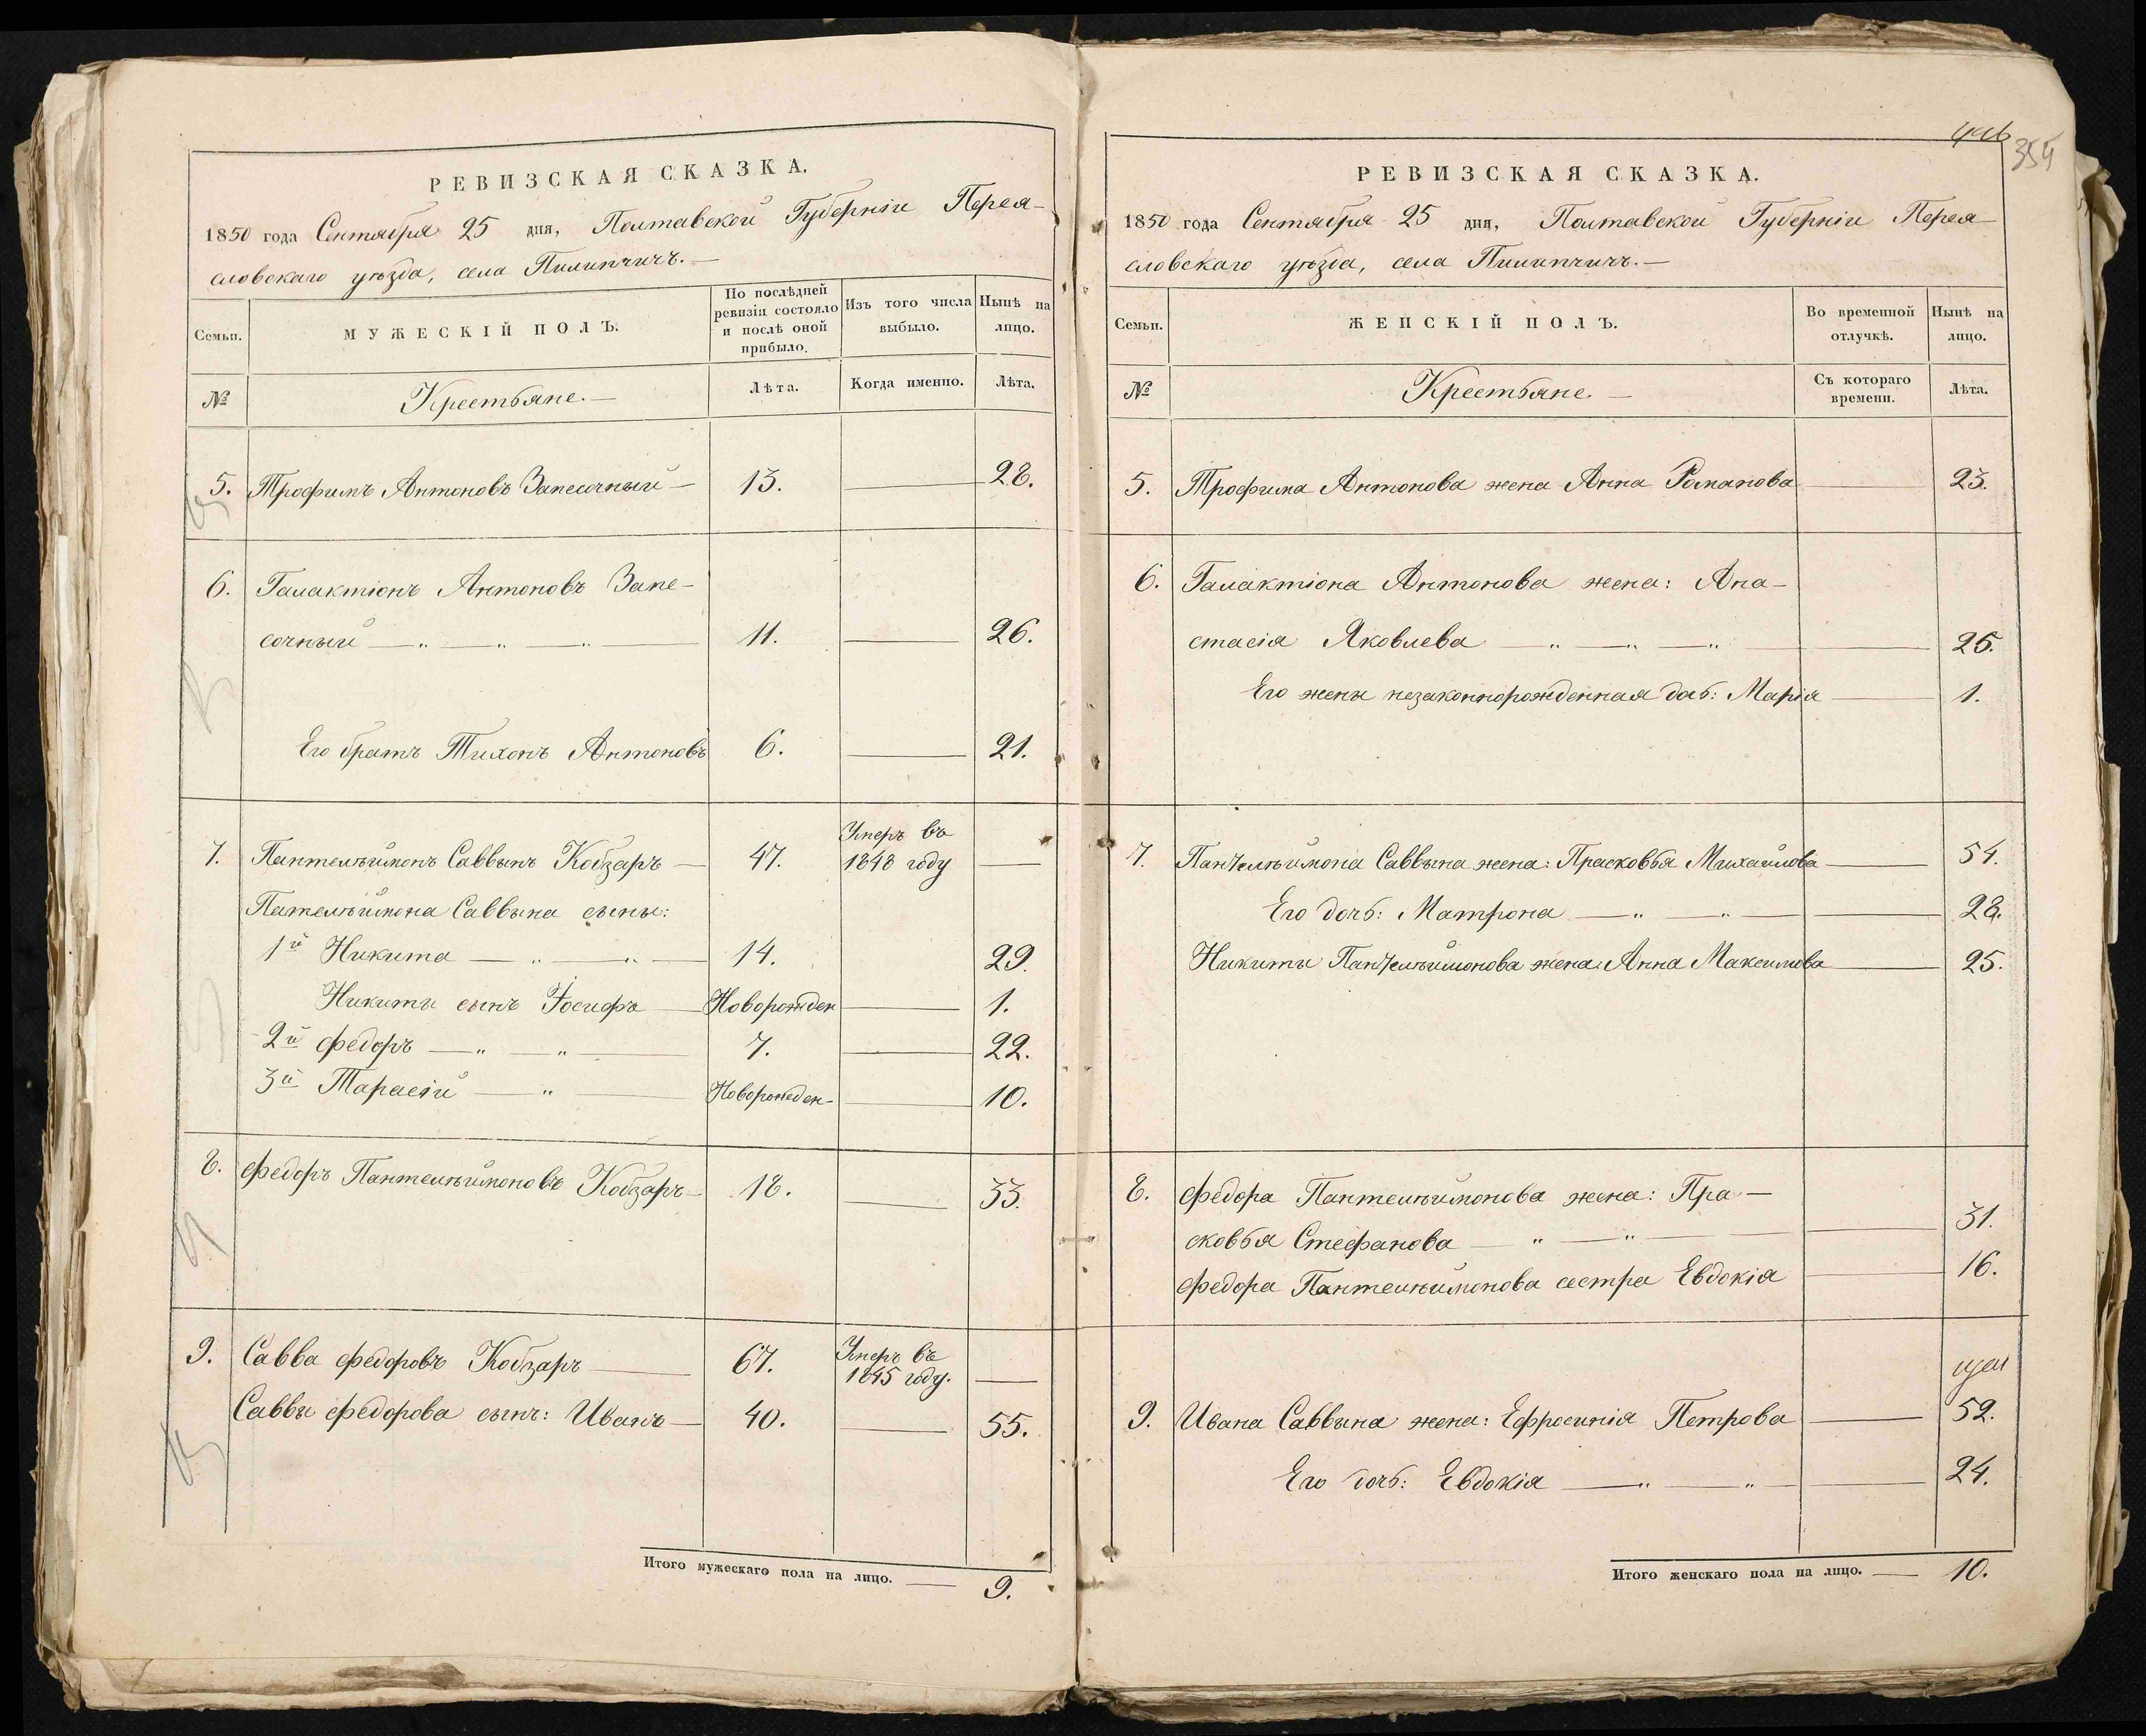 РЕВИЗСКАЯ СКАЗКА.
1850 года Сентября 25 дня, Полтавской Губерніи Перея-
словскаго уѣзда, села Пилипчичъ.—
Семьи.
МУЖЕСКІЙ ПОЛЪ.
По послѣдней ревизіи состояло и послѣ оной прибыло.
Изъ того числа выбыло.
Нынѣ на лицо.
№
Крестьяне.—
Лѣта.
Когда именно.
Лѣта.
5. Трофимъ Антоновъ Запесочный — 13. — 28.
6. Галактіонъ Антоновъ Запе-
сочный — „ — „ — „ — 11. — 26.
Его братъ Тихонъ Антоновъ 6. — 21.
7. Пантелѣймонъ Саввынъ Кобзаръ — 47. Умеръ въ 1848 году —
Пателѣймона Саввына сыны:
1й Никита — „ — „ — 14. 29.
Никиты сынъ Іосифъ — Новорожден — 1.
2й Федоръ — „ — „ — 7. — 22.
3й Тарасій — „ — Новорожден- — 10.
8. Федоръ Пантелѣймоновъ Кобзаръ — 18. — 33.
9. Савва Федоровъ Кобзаръ — 67. Умеръ въ 1845 году. —
Саввы Федорова сынъ: Иванъ — 40. — 55.
Итого мужескаго пола на лицо. — 9.
446
354
РЕВИЗСКАЯ СКАЗКА.
1850 года Сентября 25 дня, Полтавской Губерніи Перея
словскаго уѣзда, села Пилипчичъ.—
Семьи.
ЖЕНСКІЙ ПОЛЪ.
Во временной отлучкѣ.
Нынѣ на лицо.
№
Крестьяне.—
Съ котораго времени.
Лѣта.
5. Трофима Антонова жена Анна Романова — 23.
6. Галактіона Антонова жена: Ана-
стасія Яковлева — „ — „ — „ — 25.
Его жены незаконнорожденная доч: Марія — 1.
7. Пантелѣймона Саввына жена: Прасковья Михайлова — 54.
Его дочь: Матрона — „ — „ — 28.
Никиты Пантелѣймонова жена: Анна Максимова — 25.
8. Федора Пантелѣймонова жена: Пра-
сковья Стефанова — „ — „ — 31.
Федора Пантелѣймонова сестра Евдокія — 16.
9. Ивана Саввына жена: Ефросинія Петрова — 52.
Его дочь: Евдокія — „ — „ — 24.
Итого женскаго пола на лицо. — 10.